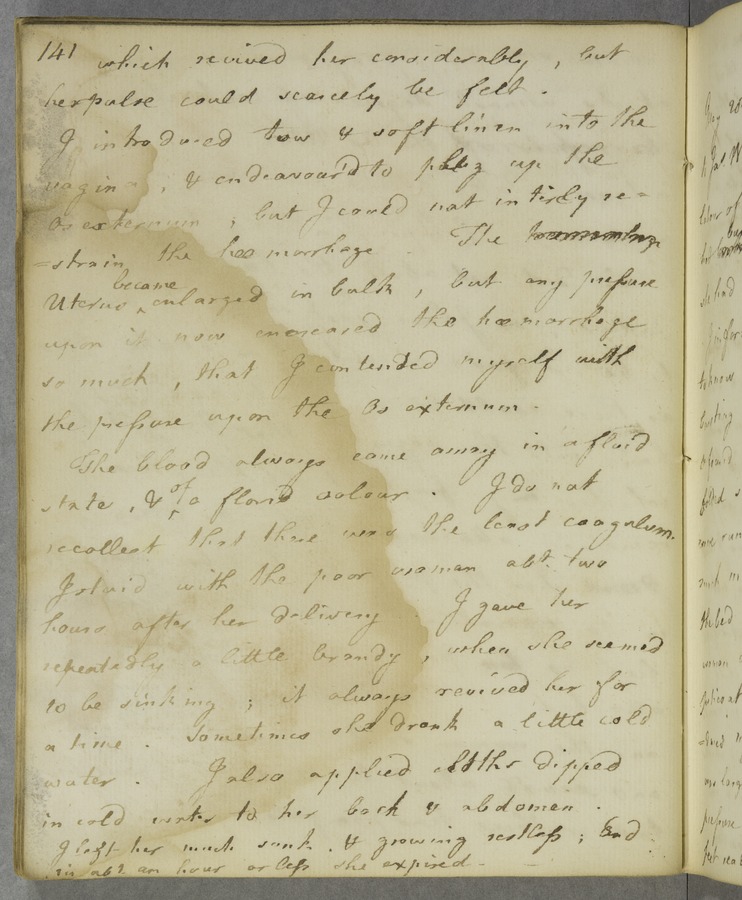 141 which revived her considerably, but
her pulse could scarcely be felt.
I introduced tow & soft linen into the
vagina, & endeavour'd to plug up the
os externum; but I could not intirely re=
=strain the hœmorrhage. The
Uterus became enlarged in bulk, but any preſsure
upon it now encreased the hœmorrhage
so much, that I contented myself with
the preſsure upon the Os externum.
The blood always came away in a fluid
state, & of a florid colour. I do not
recollect that there was the least coagulum.
I staid with the poor woman abt. two
hours after her delivery. I gave her
repeatedly a little brandy, when she seemed
to be sinking; it always revived her for
a time. Sometimes she drank a little cold
water. I also applied cloths dipped
in cold water to her back & abdomen.
I left her much sunk, & growing restleſs; and
in abt. an hour or leſs she expired.